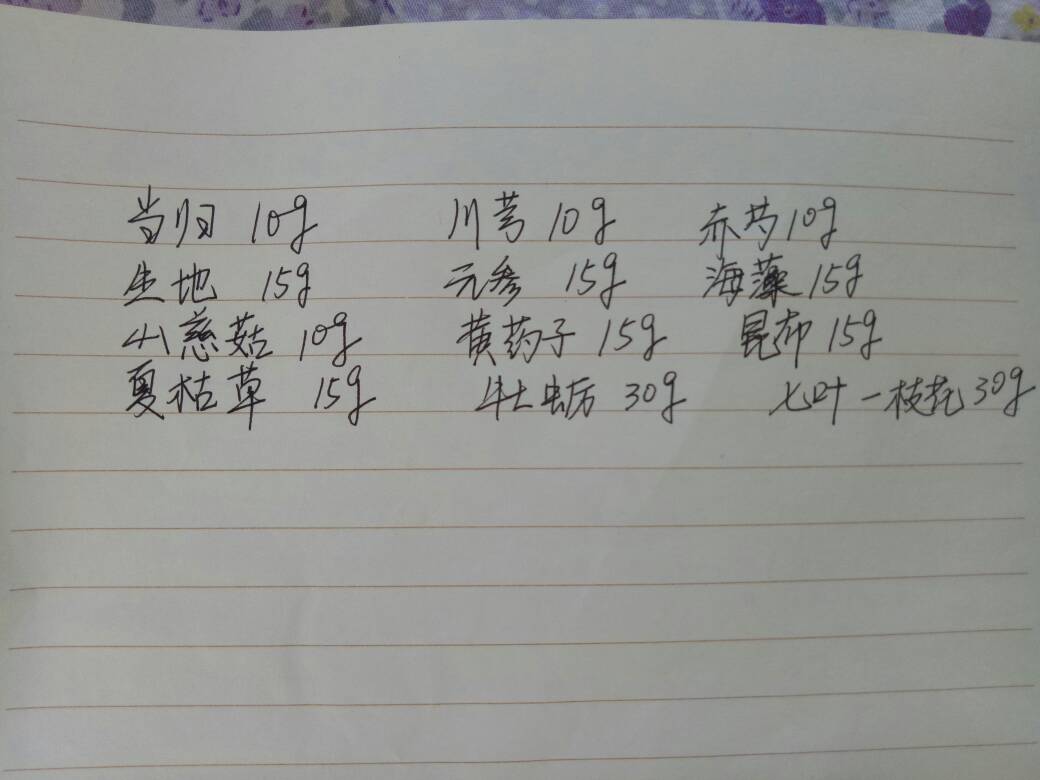 当归 10g 川芎 10g 赤芍 10g
生地 15g 元参 15g 海藻 15g
山慈菇 10g 黄药子 15g 昆布 15g
夏枯草 15g 牡蛎 30g 七叶一枝花 30g